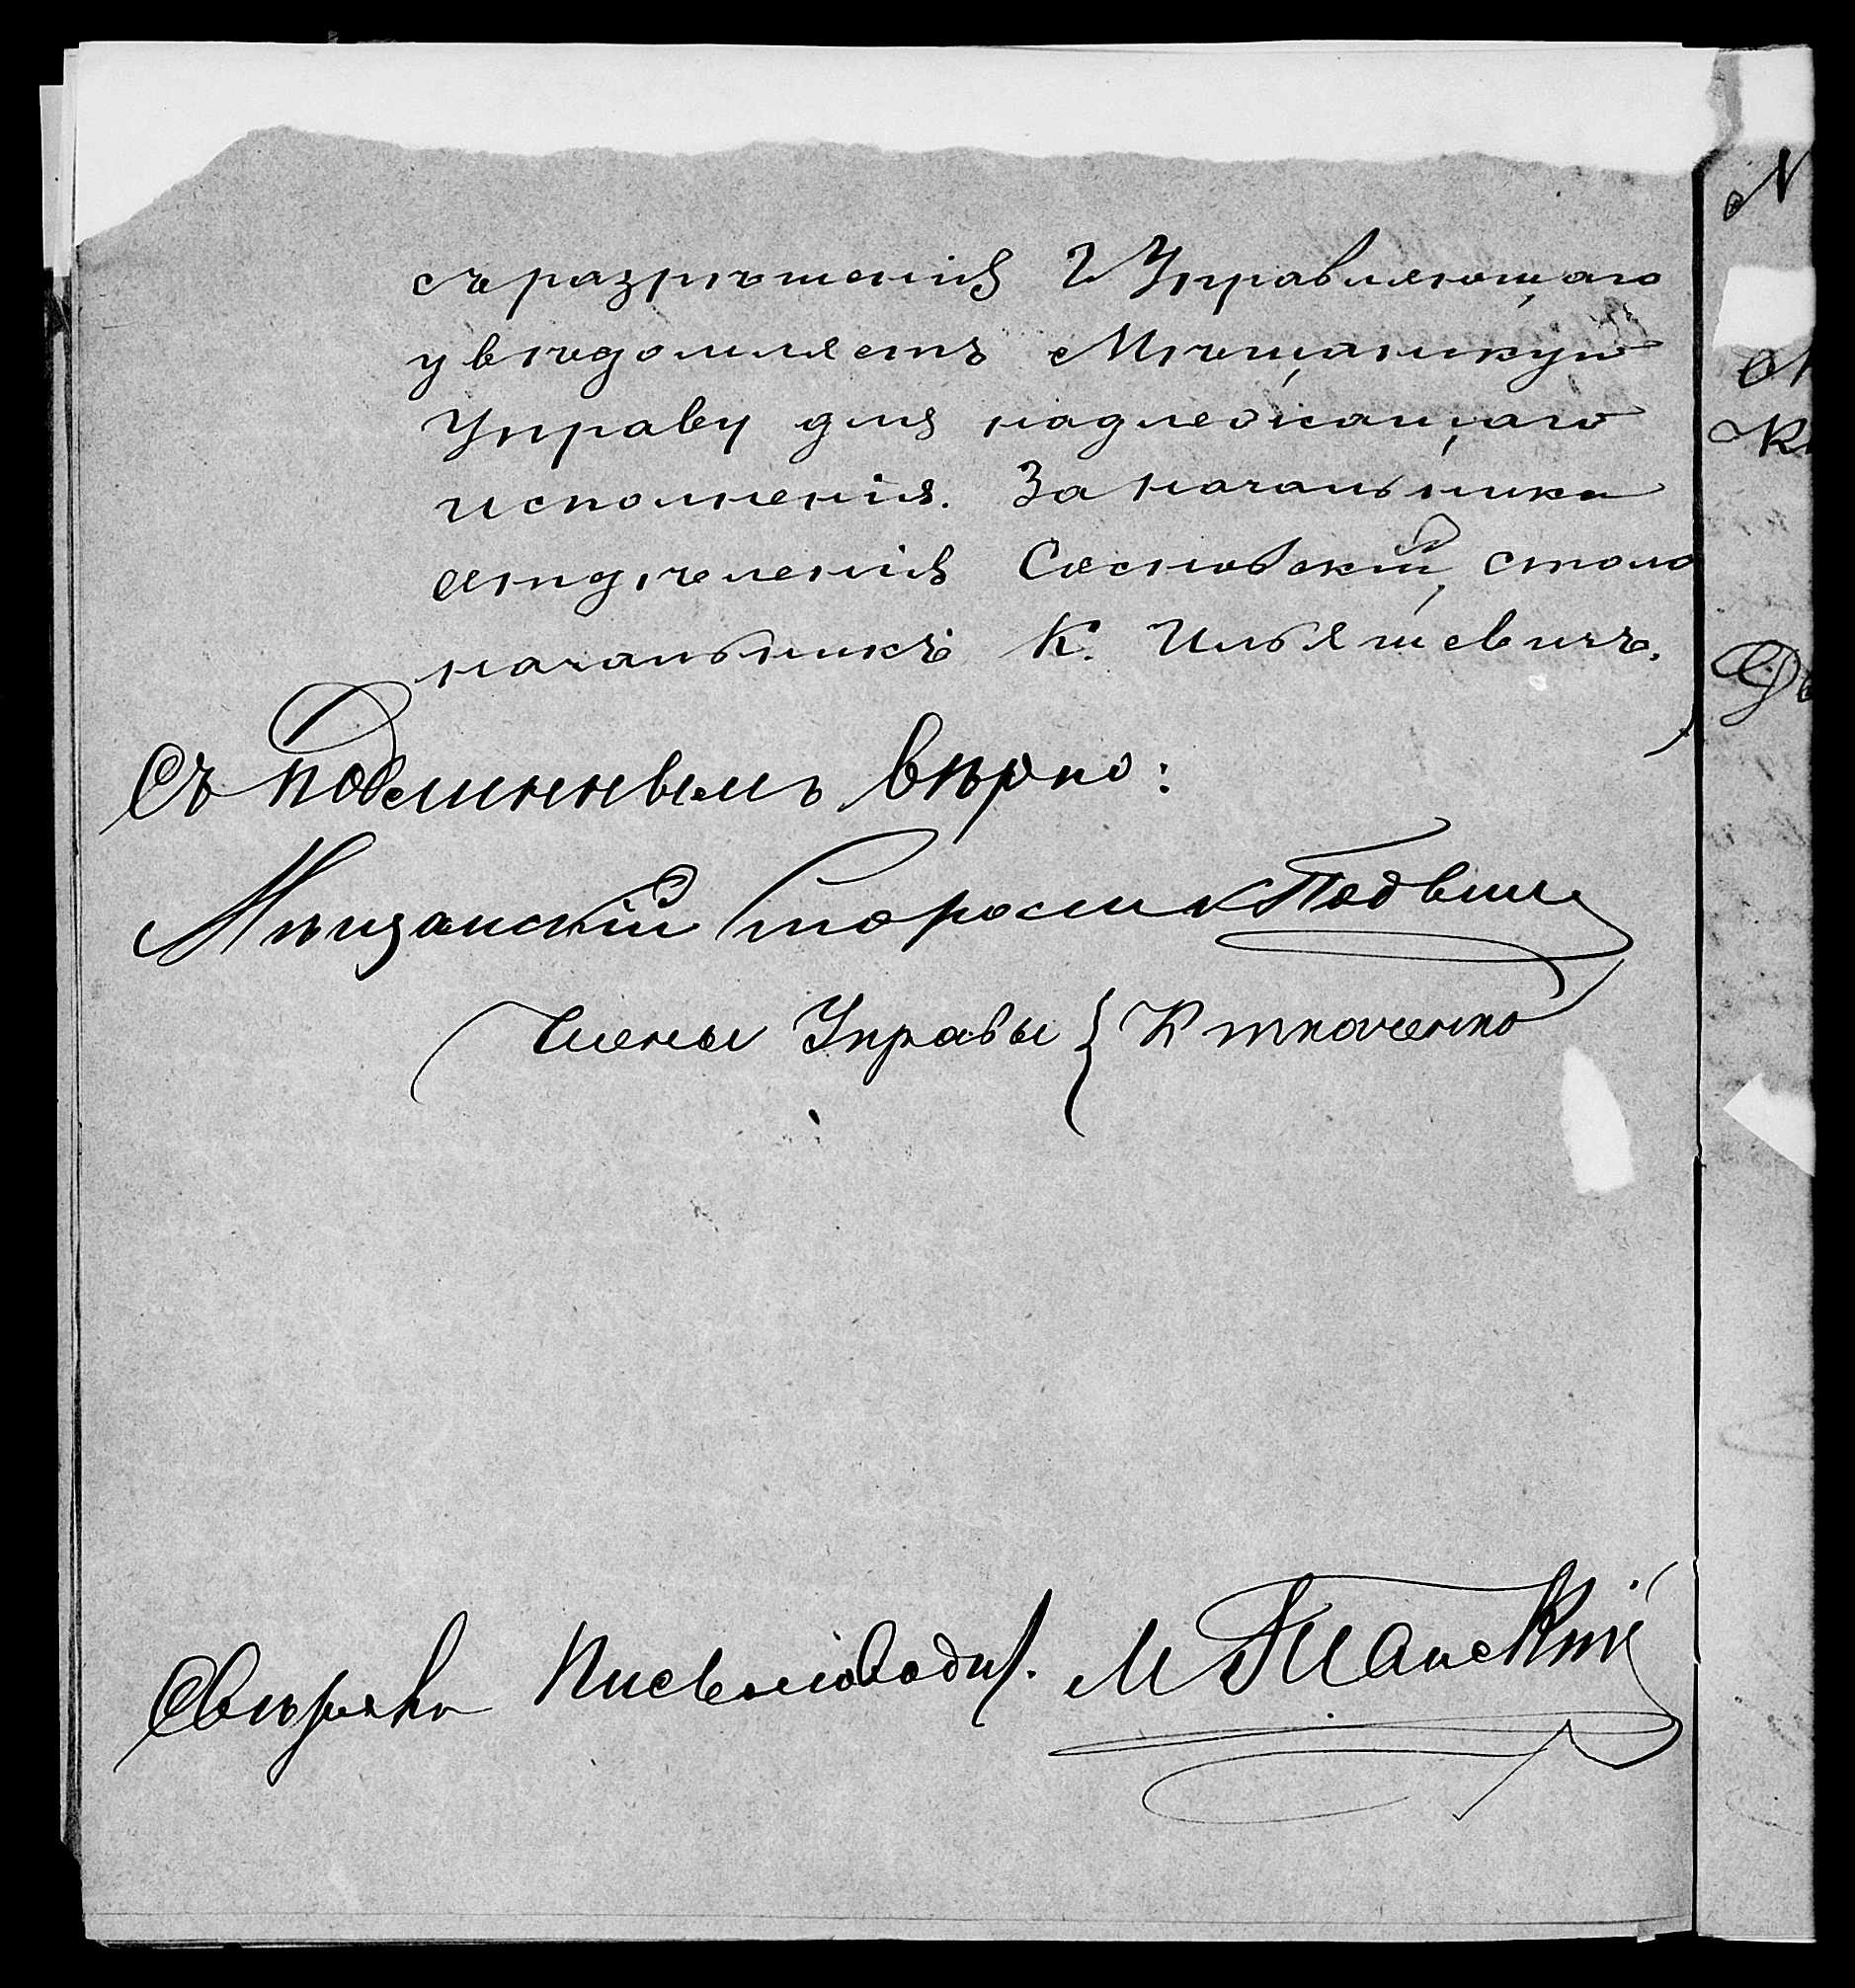 съ разрѣшенія Г Управляющаго
увѣдомляетъ Мѣщанскую
Управу для надлежащаго
исполненія. За начальника
отдѣленія Сосновскій, столо
начальникъ К. Ильяшевичъ.
Съ подлиннымъ вѣрно:
Мѣщанскій Староста
Члены Управы { К Ткаченко
Свѣрялъ Письмоводит.